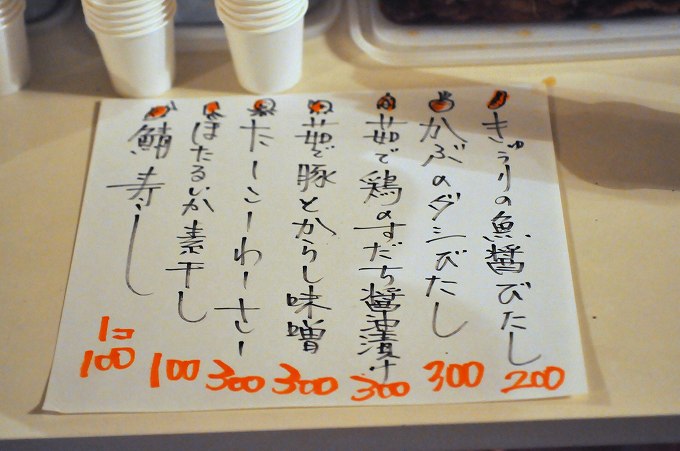 きゅうりの魚醤びたし 200
かぶのダシびたし 300
茹で鶏のすだち醤油漬け 300
茹で豚とからし味噌 300
たーこーわーさー 300
ほたるいか素干し 100
鯖寿し 1コ100